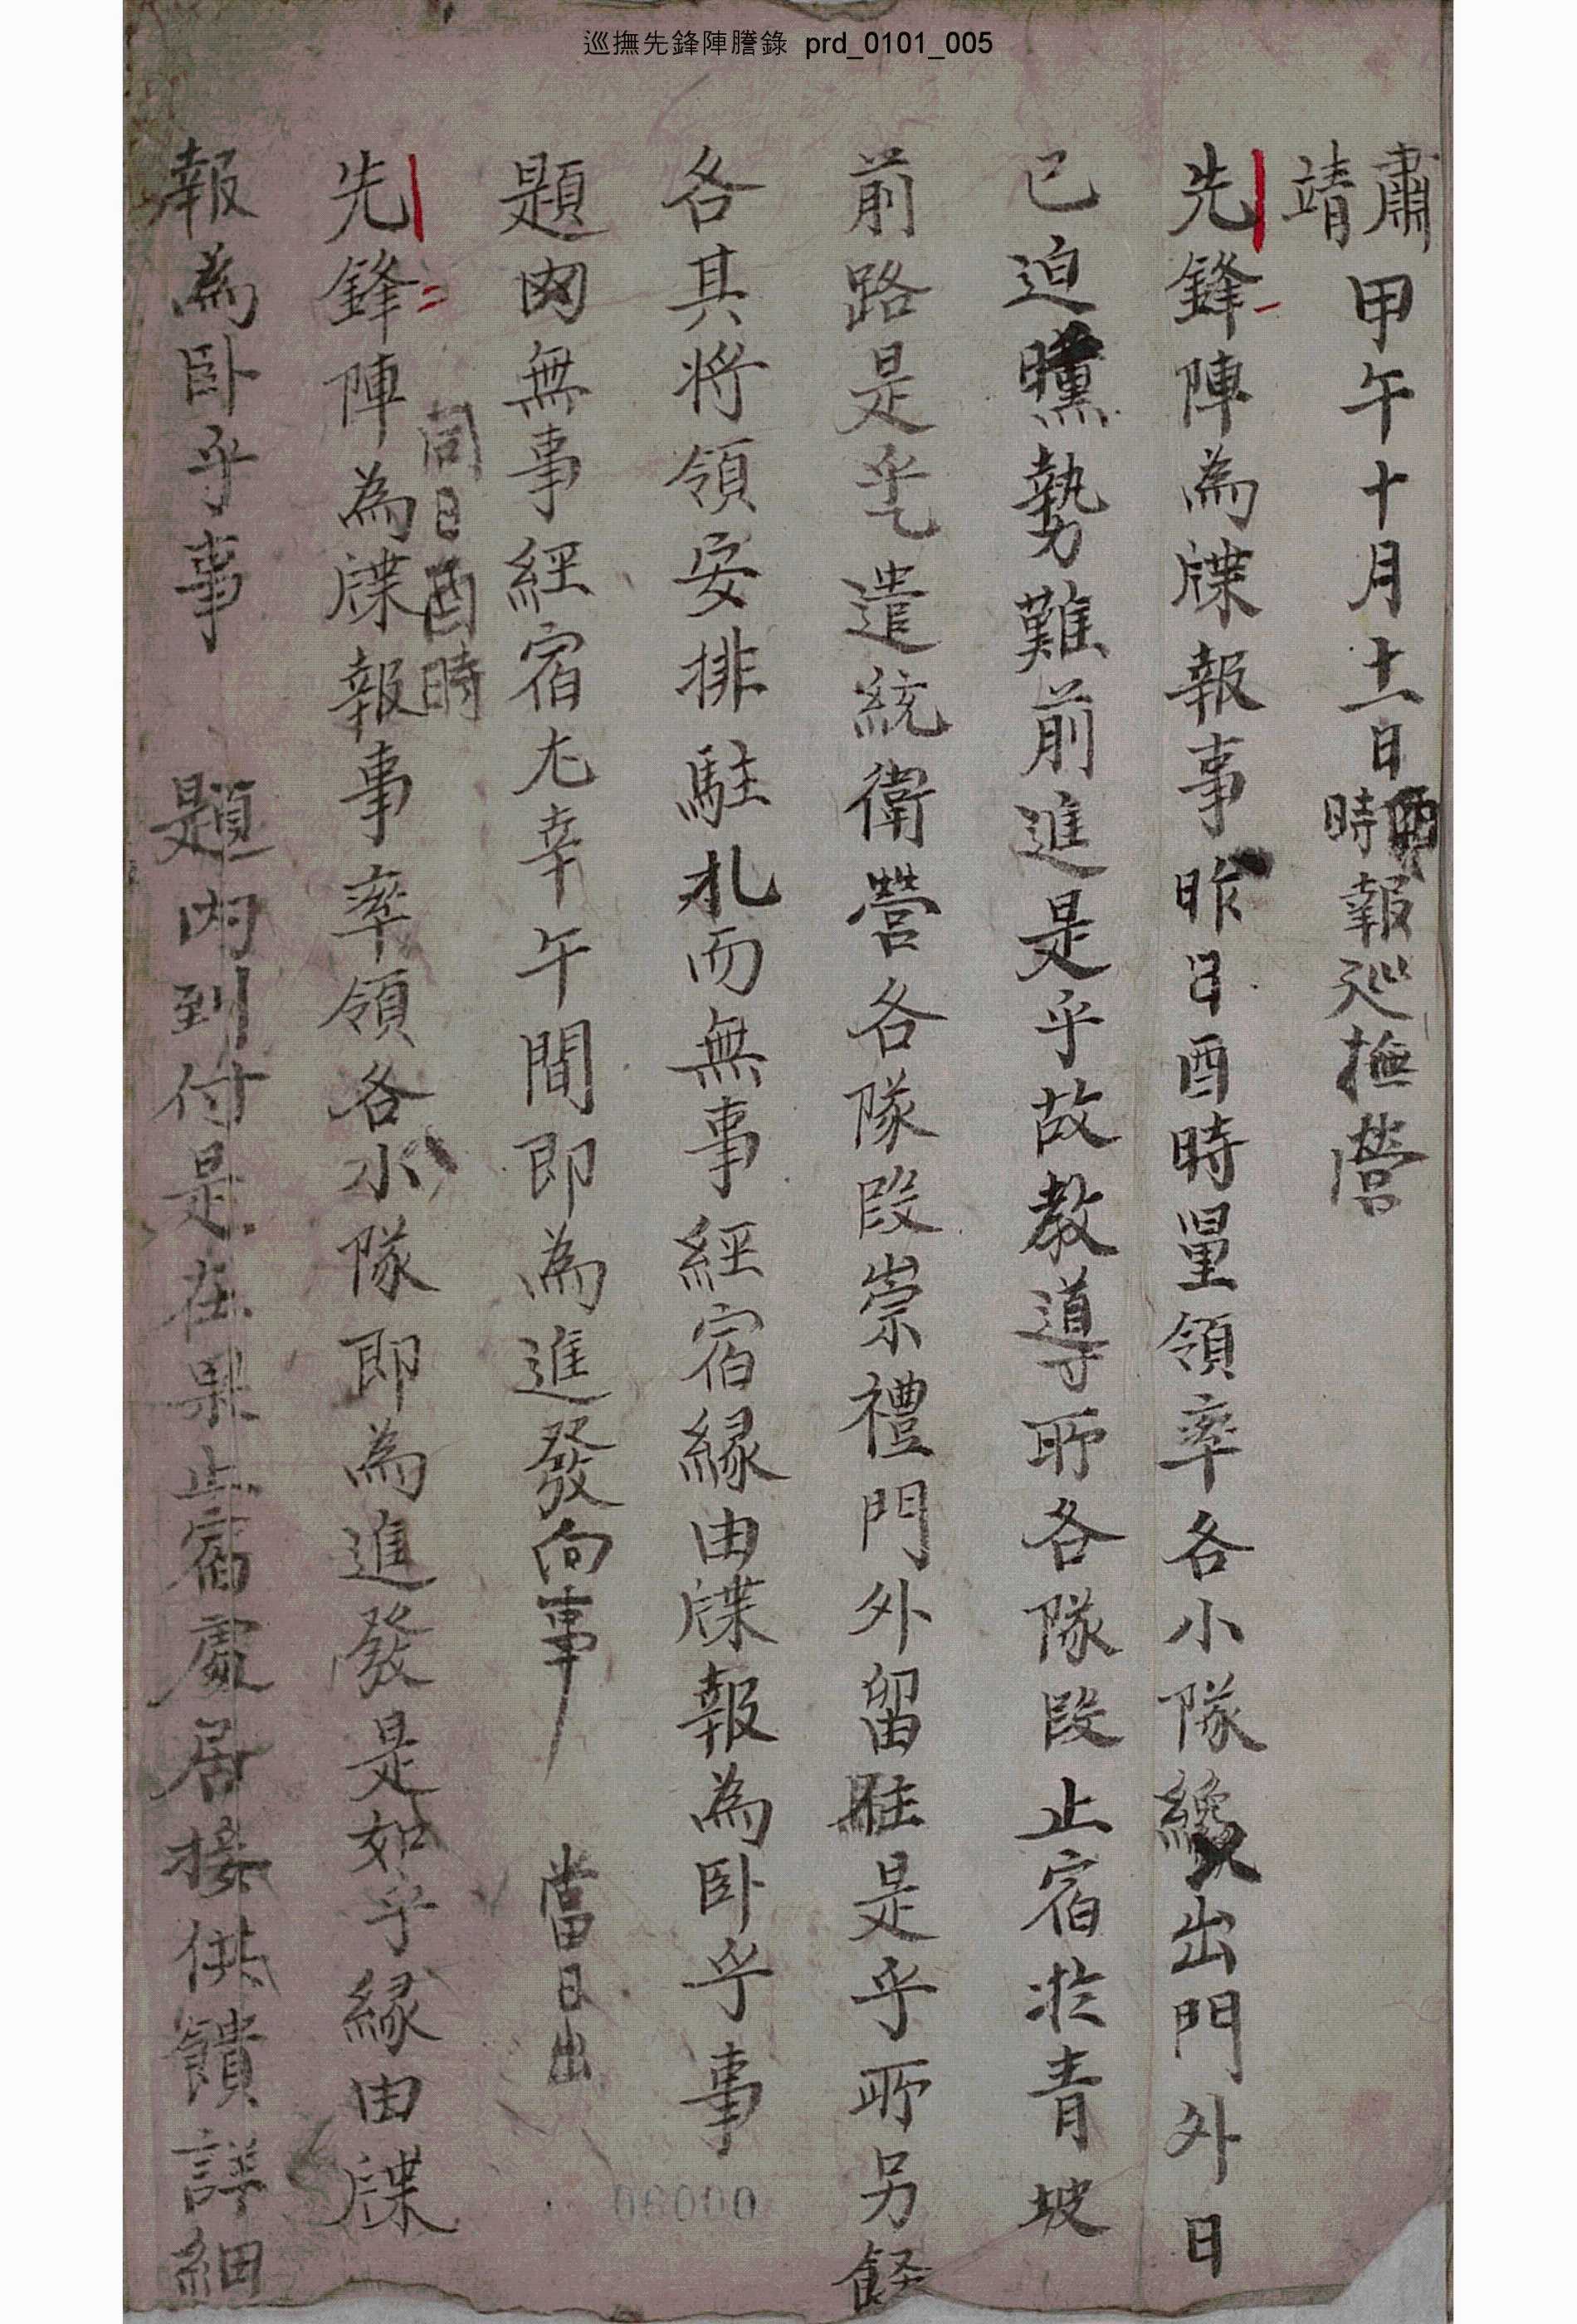 巡撫先鋒陣謄錄 prd_0101_005
肅靖 甲午十月十一日 時 報巡撫營
先鋒陣為牒報事昨日酉時量領率各小隊纔出門外日
已迫曛勢難前進是乎故教導所各隊段止宿於青坡
前路是乎乇遣統衛營各隊段崇禮門外留駐是乎所另飭
各其將領安排駐札而無事經宿緣由牒報為臥乎事
題內無事經宿尤幸午間即為進發向事 當日出
同日酉時
先鋒陣為牒報事率領各小隊即為進發是如乎緣由牒
報為臥乎事 題內到付是在果止宿處居接供饋詳細
00090